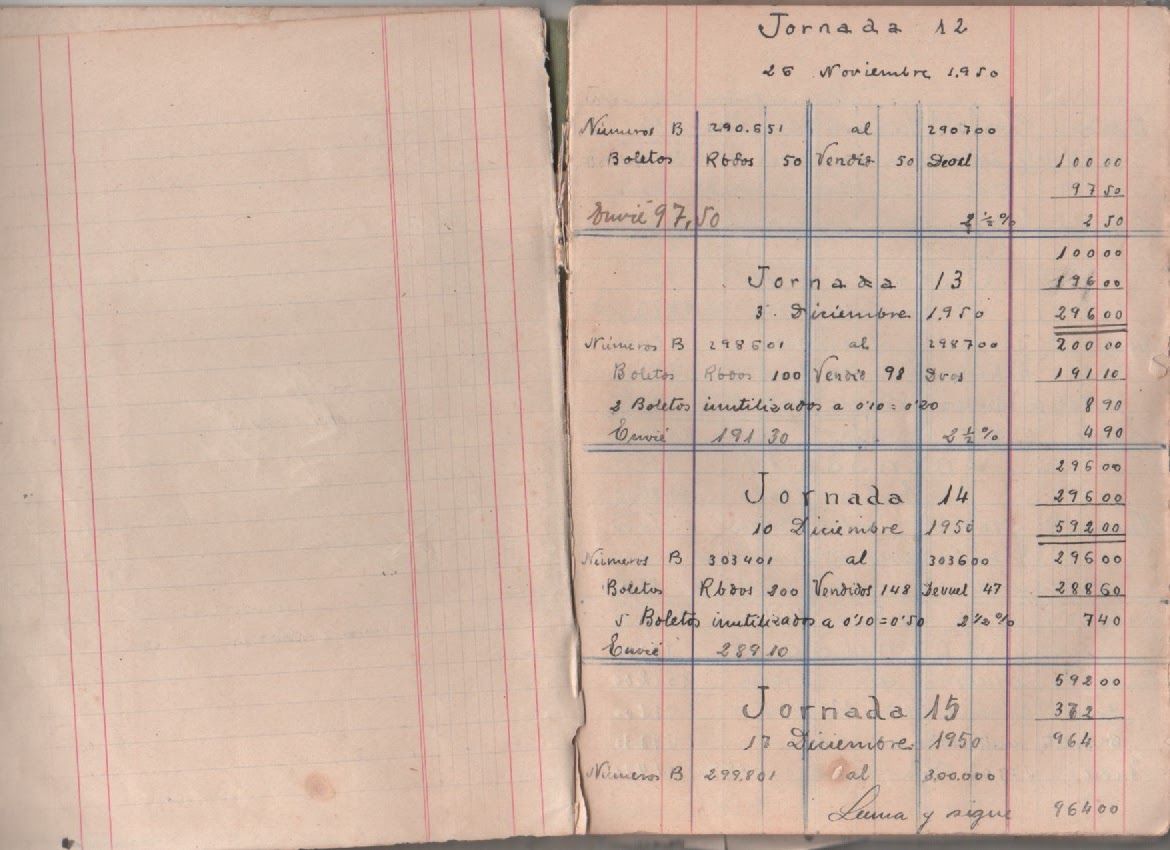 Jornada 12
26 Noviembre 1.950
Números B 290.651 al 290700
Boletos Rbdos 50 Vendio 50 Devel 100 00
97 50
Envié 97,50 2 ½ % 2 50
100 00
Jornada 13 196 00
3 Diciembre 1.950 296 00
Números B 298601 al 298700 200 00
Boletos Rbdos 100 Vendió 98 Dvos 191 10
2 Boletos inutilizados a 0'10 = 0'20 8 90
Envié 191 30 2 ½ % 4 90
296 00
Jornada 14 296 00
10 Diciembre 1950 592 00
Números B 303401 al 303600 296 00
Boletos Rbdos 200 Vendidos 148 Devuel 47 288 60
5 Boletos inutilizados a 0'10 = 0'50 2 ½ % 7 40
Envié 289 10
592 00
Jornada 15 372
17 Diciembre 1950 964
Números B 299.801 al 300.000
Suma y sigue 964 00